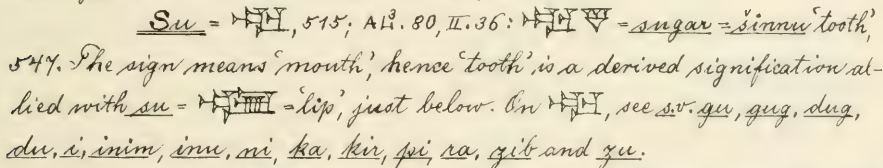 Su = 𒅗, 515; AL³. 80, II. 36: 𒅗 𒃻 = sugar = šinnu ‘tooth’,
547. The sign means ‘mouth’, hence ‘tooth’ is a derived signification al-
lied with su = 𒉏 = ‘lip’, just below. On 𒅗, see s.v. gu, gug, dug,
du, i, inim, inu, ni, ka, kir, pi, ra, zib and zu.